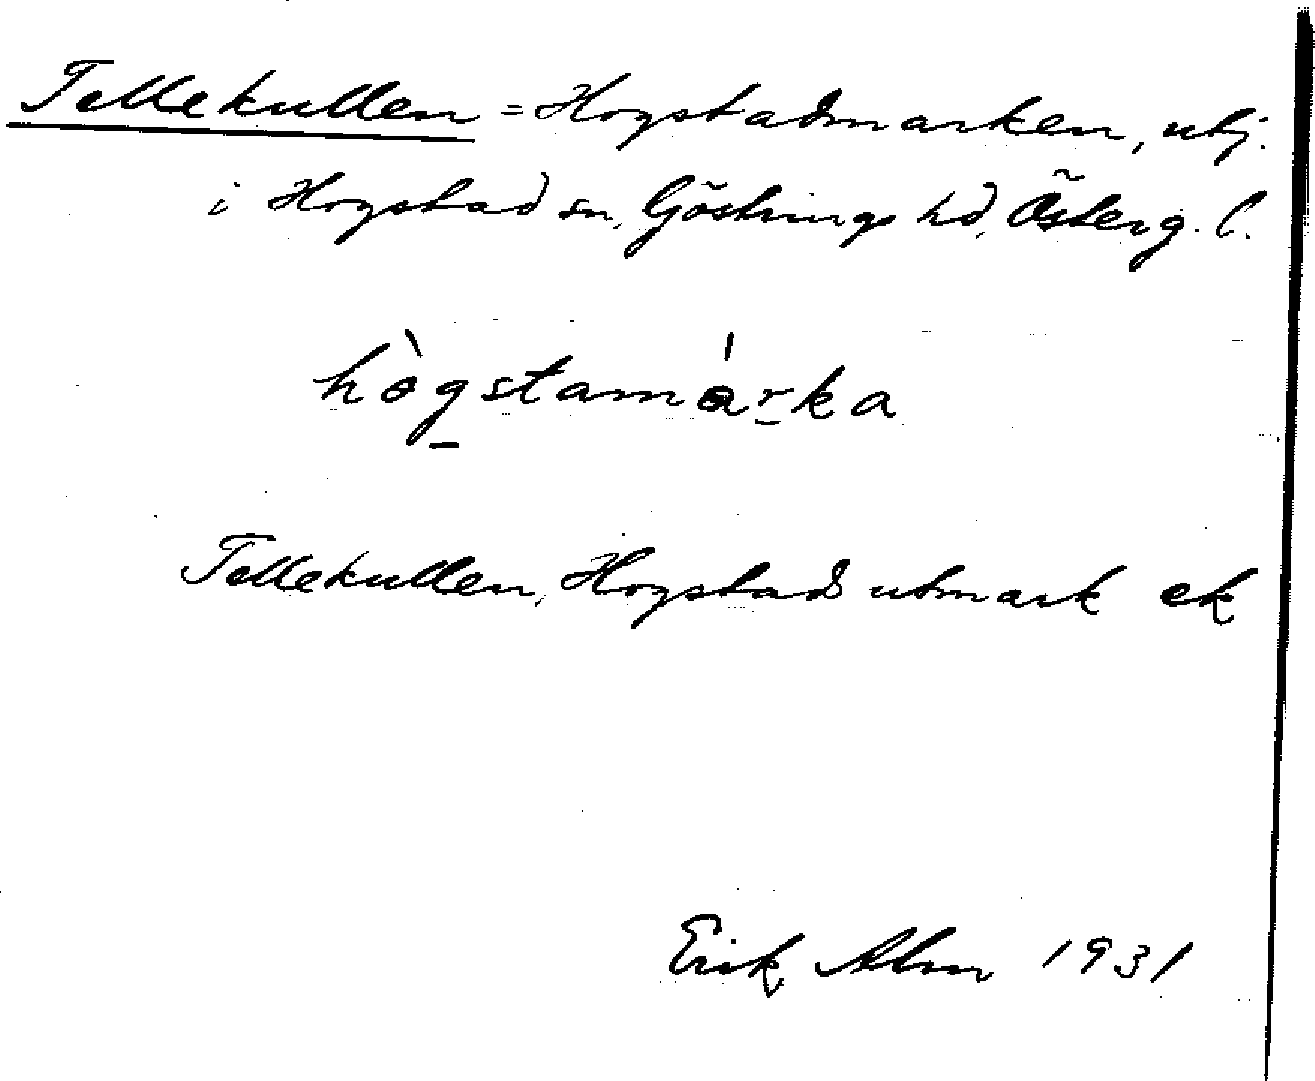 Tellekullen = Hogstadmarken, utj.
i Hogstad sn, Göstrings hd, Österg. l.
hògstamárka
Tellekullen, Hogstads utmark ek
Erik Alm 1931